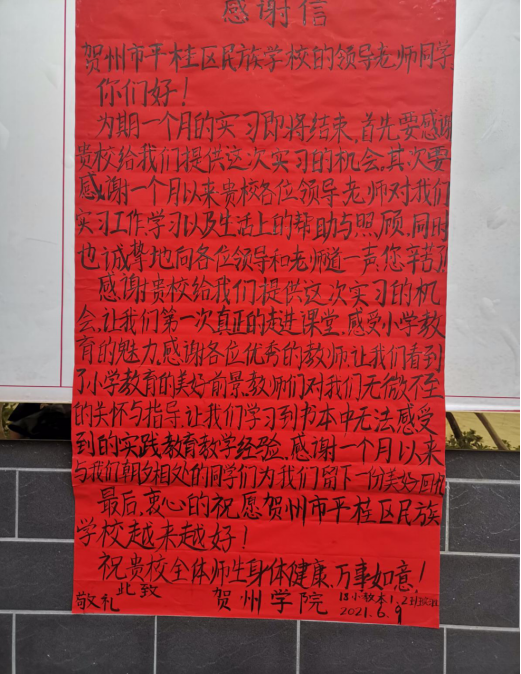 感谢信
贺州市平桂区民族学校的领导老师同学
你们好!
为期一个月的实习即将结束,首先要感谢
贵校给我们提供这次实习的机会,其次要
感谢一个月以来贵校各位领导老师对我们
实习工作,学习以及生活上的帮助与照顾,同时
也诚挚地向各位领导和老师道一声,您辛苦了
感谢贵校给我们提供这次实习的机
会,让我们第一次真正的走进课堂,感受小学教
育的魅力,感谢各位优秀的教师,让我们看到
了小学教育的美好前景,教师们对我们无微不至
的关怀与指导,让我们学习到书本中无法感受
到的实践教育教学经验,感谢一个月以来
与我们朝夕相处的同学们为我们留下一份美好回忆
最后,衷心的祝愿贺州市平桂区民族
学校越来越好!
祝贵校全体师生身体健康,万事如意!
此致
敬礼 贺州学院 18小教本1、2班
2021.6.9